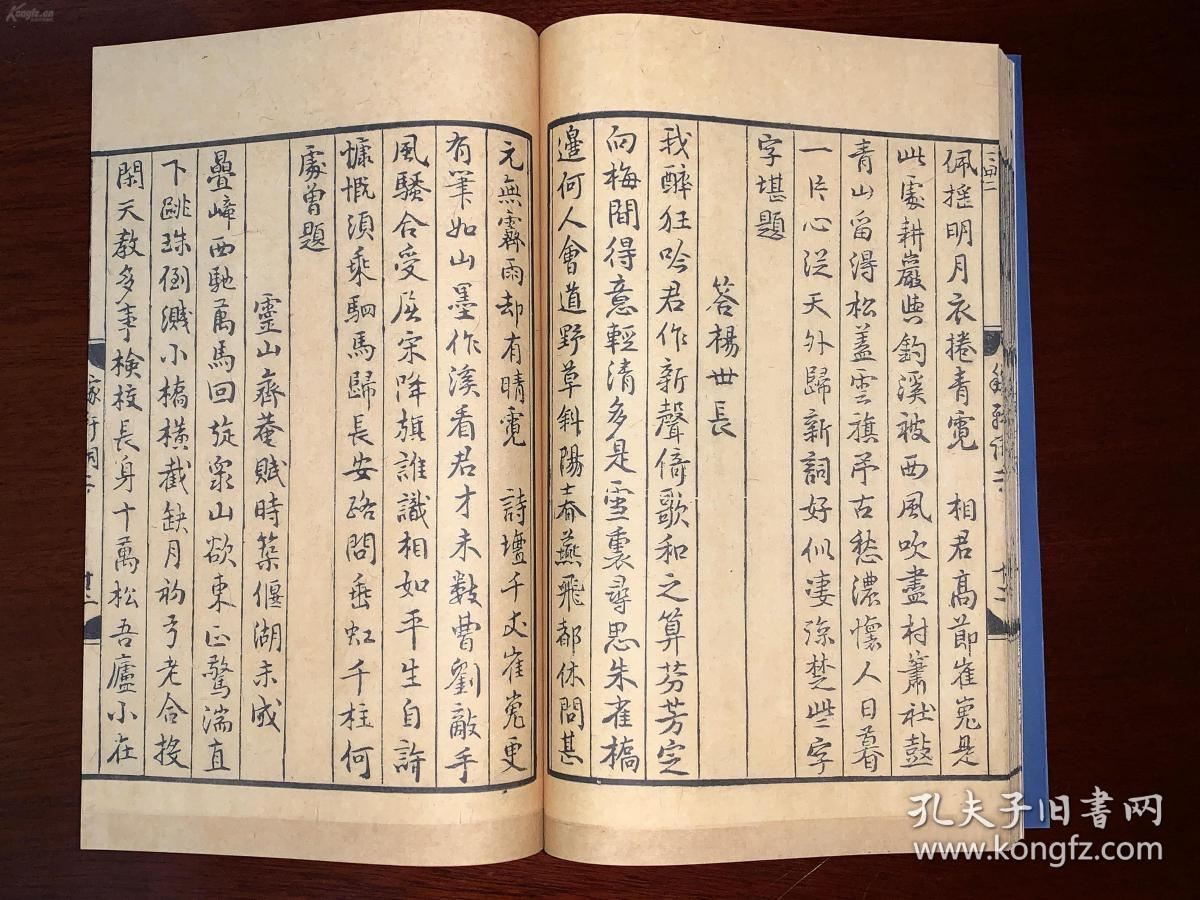 Kongfz.cn
佩搖明月衣捲青霓　相君高節崔嵬是
此處耕巖與釣溪被西風吹盡村簫社鼓
青山留得松蓋雲旗弔古愁濃懷人日暮
一片心從天外歸新詞好似淒涼楚些字
字堪題
答楊世長
我醉狂吟君作新聲倚歌和之算芬芳定
向梅間得意輕清多是雪裏尋思朱雀橋
邊何人會道野草斜陽春燕飛都休問甚
元無霽雨却有晴霓　詩壇千丈崔嵬更
有筆如山墨作溪看君才未數曹劉敵手
風騷合受屈宋降旗誰識相如平生自許
慷慨須乘駟馬歸長安路問垂虹千柱何
處曾題
靈山齊菴賦時築偃湖未成
疊嶂西馳萬馬回旋衆山欲東正驚湍直
下跳珠倒濺小橋橫截缺月初弓老合投
閑天教多事檢校長身十萬松吾廬小在
孔夫子旧书网
www.kongfz.com